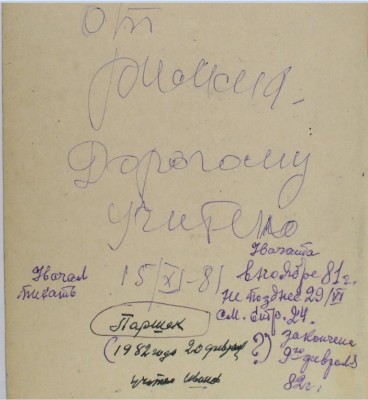 От
Дорогому
учителю
Начата
в ноябре 81 г.
не позднее 29/XI
см. стр. 24.
закончена
9го февраля
82 г.
Начал
писать
15/XI-81
Паршек
(1982 года 20 феврал ?)
учитель Иванов